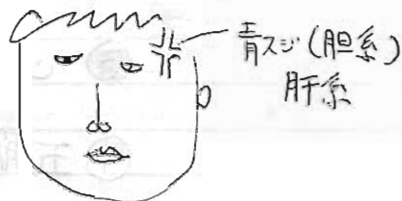 青スジ(胆系)
肝系